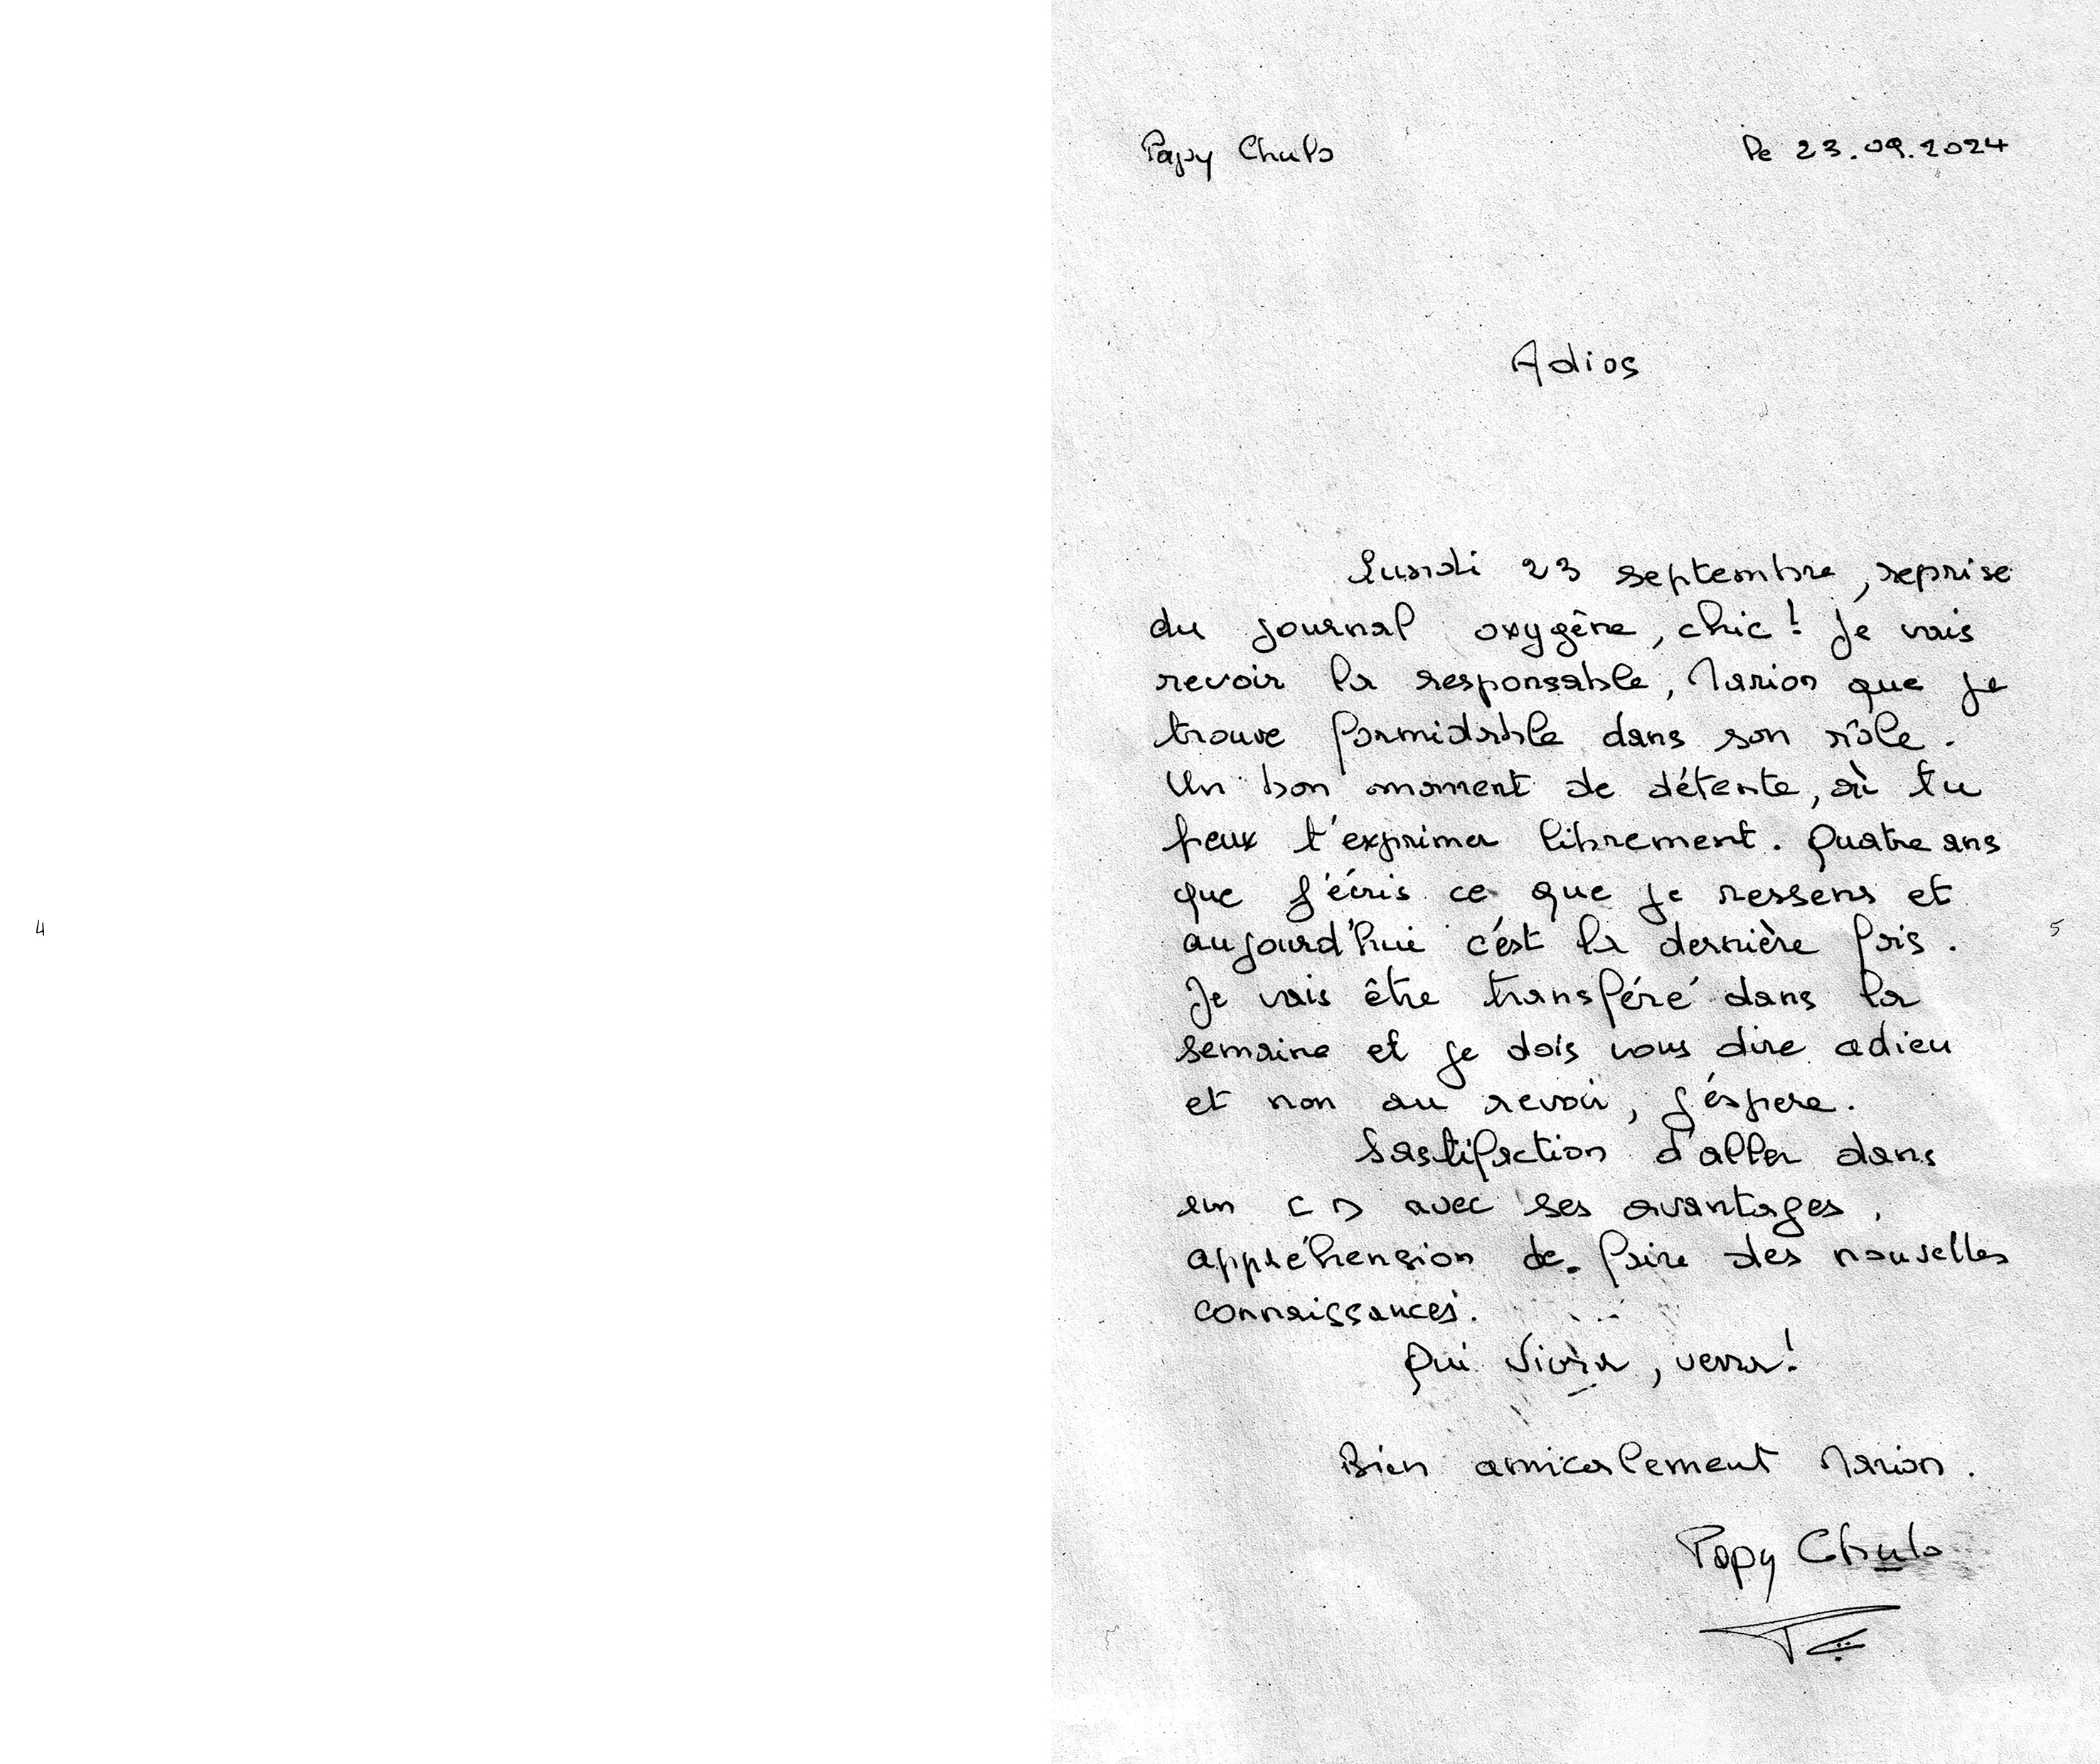 4
Papy Chulo
le 23.09.2024
Adios
Lundi 23 septembre, reprise
du journal oxygène, chic! Je vais
revoir la responsable, Marion que je
trouve formidable dans son rôle.
Un bon moment de détente, où tu
peux t'exprimer librement. Quatre ans
que j'écris ce que je ressens et
aujourd'hui c'est la dernière fois.
Je vais être transféré dans la
semaine et je dois vous dire adieu
et non au revoir, j'éspere.
Sastifaction d'aller dans
un CD avec ses avantages,
appréhension de faire des nouvelles
connaissances.
Qui vivra, verra!
Bien amicalement Marion.
Papy Chulo
5